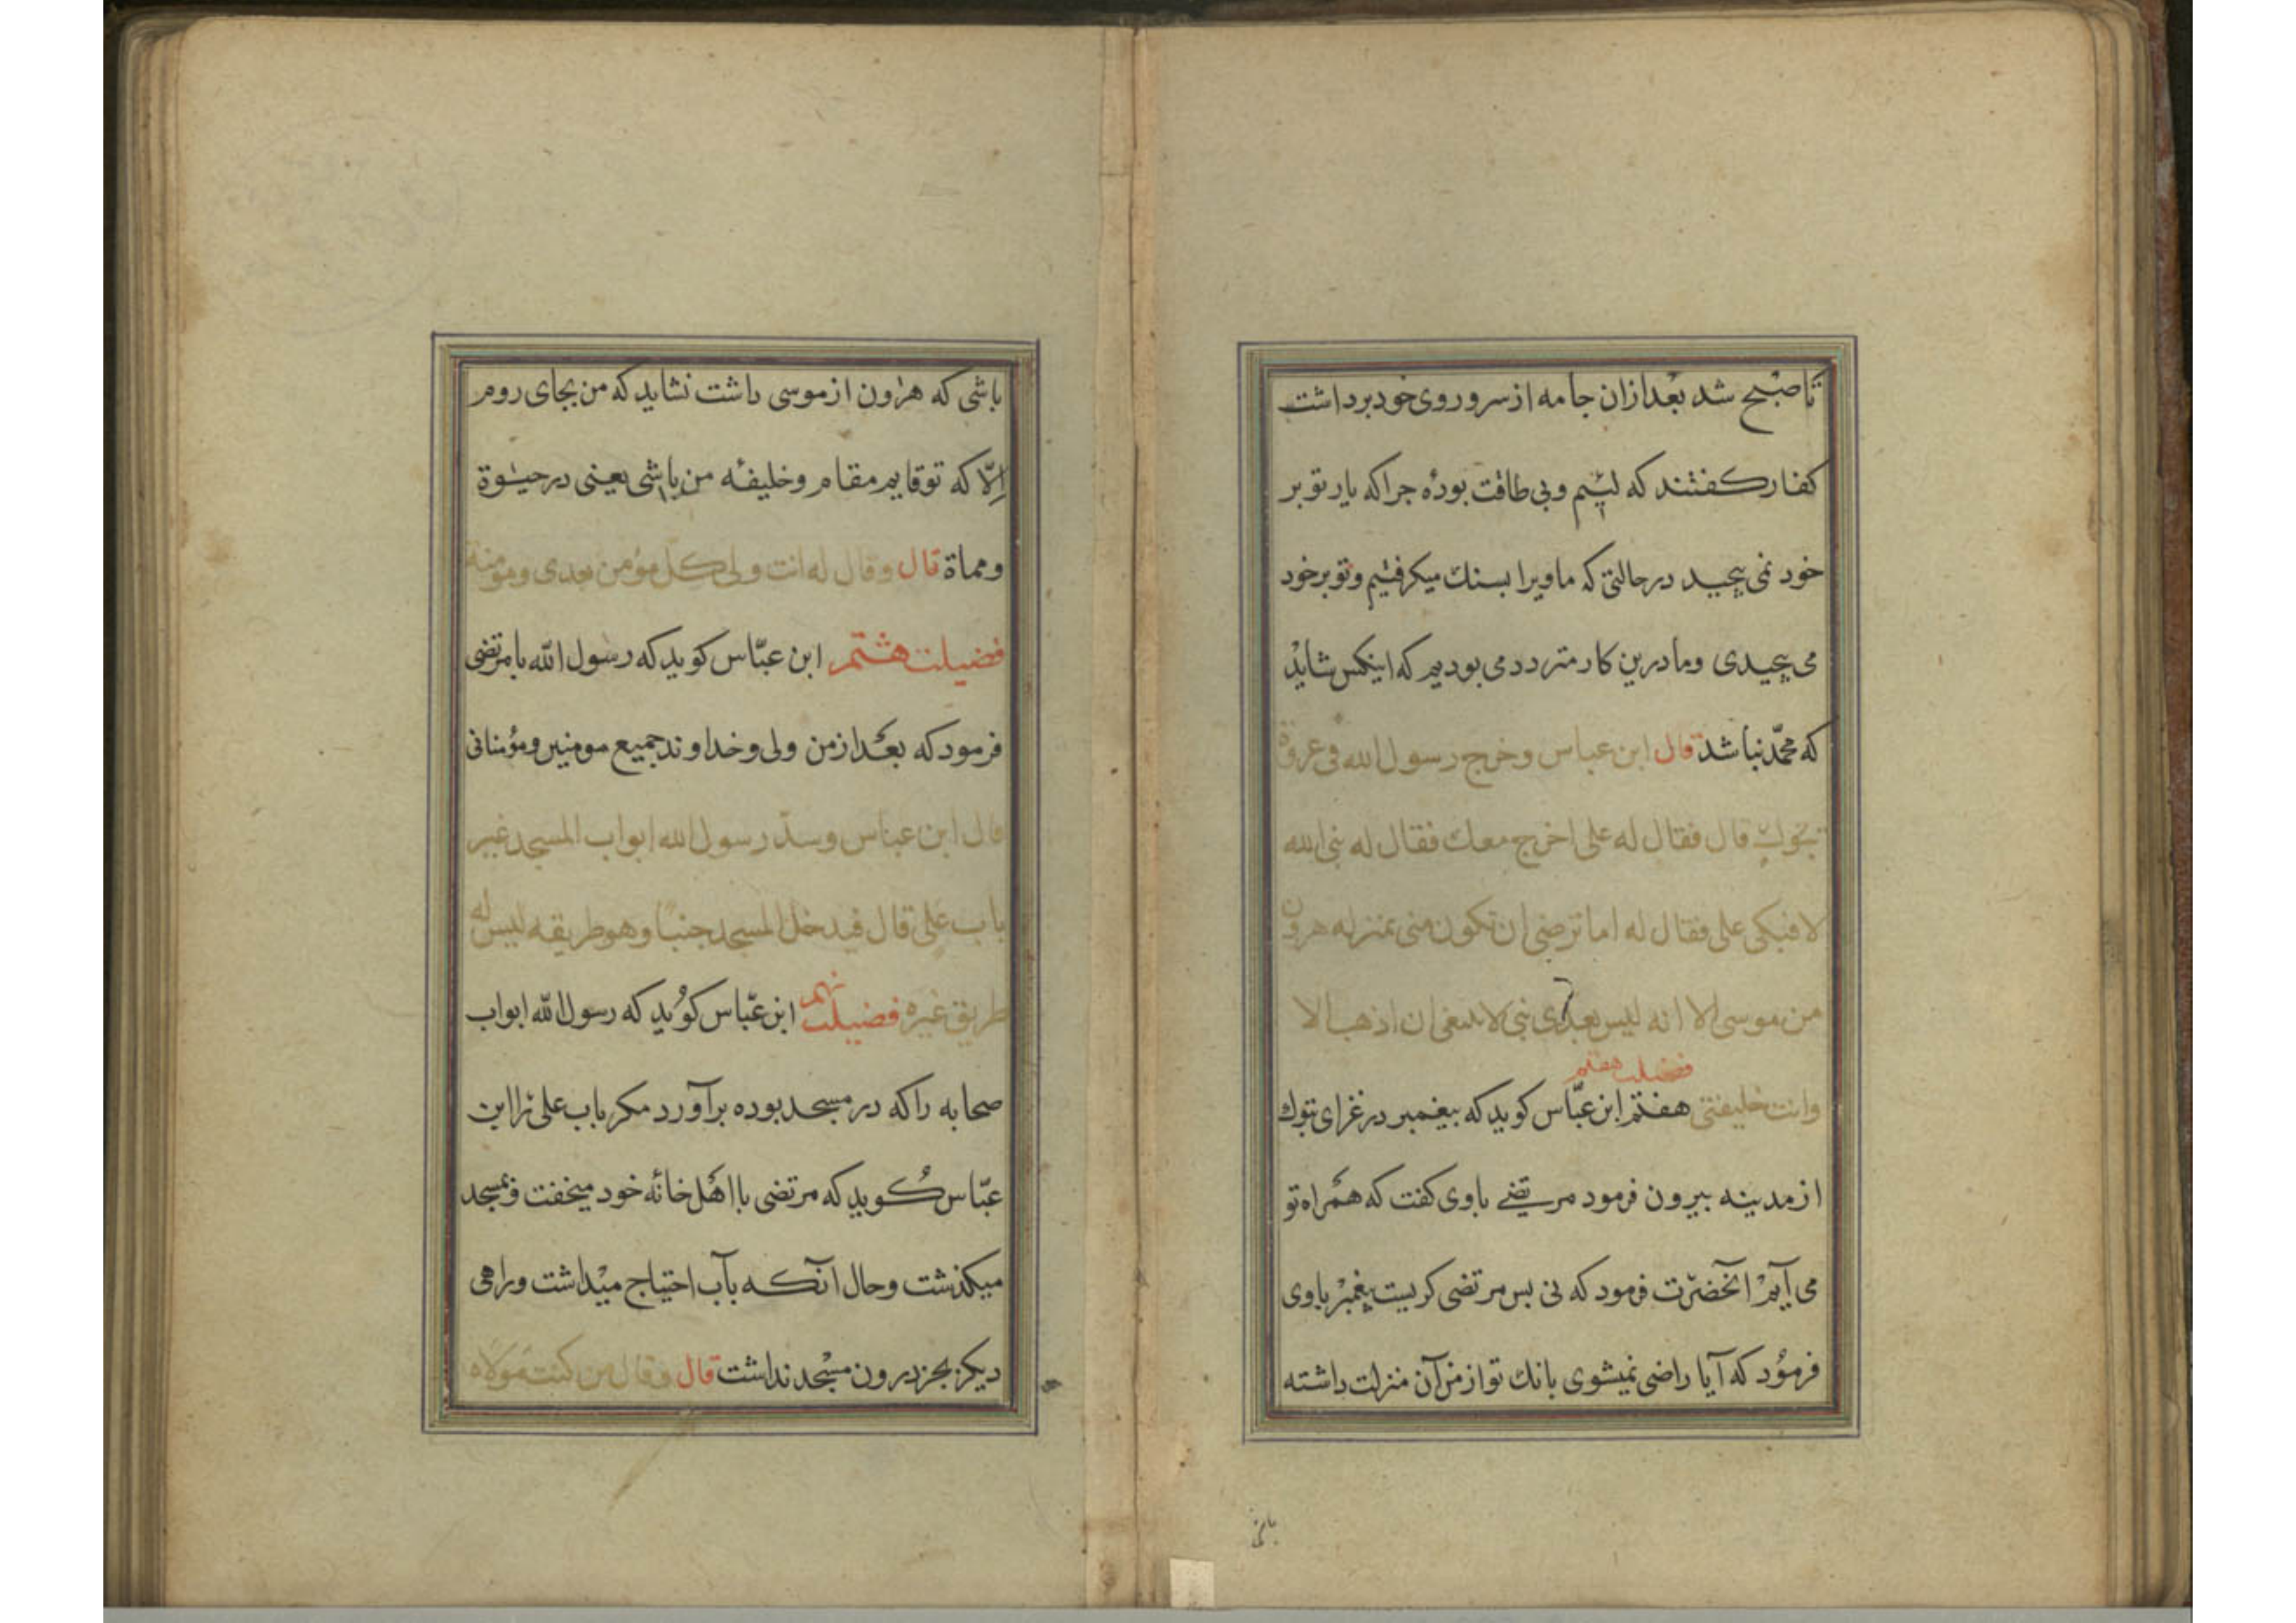 تا صبح شد بعد ازان جامه از سر و روی خود برداشت
کفار کفتند که لئیم و بی طاقت بودهٔ جرا که یار تو بر
خود نمی پیجید در حالتی که ما ویرا بسنك میکرفتیم و تو بر خود
می پیجیدی و ما درین کار متردد می بودیم که اینکس شاید
که محمّد نباشد قال ابن عباس و خرج رسول الله فی عروة
تبوك قال فقال له علی اخرج معك فقال له نبی الله
لا فبکی علی فقال له اما ترضی ان تکون منی بمنزله هرون
من موسی الا انه لیس بعدی نبی لا ینبغی ان اذهب الا
فضیلت هفتم
وانت خلیفتی هفتم ابن عبّاس کوید که بیغمبر در غزای تبوك
از مدینه بیرون فرمود مرتضی باوی کفت که همراه تو
می آیم آنحضرت فرمود که نی بس مرتضی کریست پیغمبر باوی
فرمود که آیا راضی نمیشوی بانك تو از من آن منزلت داشته
باشی که هرون از موسی داشت نشاید که من بجای روم
اِلّا که تو قایم مقام و خلیفهٔ من باشی یعنی در حیوة
و مماة قال وقال له انت ولی کل مؤمن بعدی ومؤمنة
فضیلت هشتم ابن عبّاس کوید که رسول الله با مرتضی
فرمود که بعد از من ولی و خداوند جمیع مومنین و مؤمنانی
قال ابن عباس وسدّ رسول الله ابواب المسجد غیر
باب علی قال فیدخل المسجد جنبًا وهو طریقه لیس له
طریق غیره فضیلت نهم ابن عبّاس کوید که رسول الله ابواب
صحابه را که در مسجد بوده برآورد مکر باب علی را ابن
عبّاس کوید که مرتضی با اهل خانهٔ خود میخفت و بمسجد
میکذشت و حال آنکه بآب احتیاج میداشت و راهی
دیکر بجز درون مسجد نداشت قال وقال من کنت مولاه